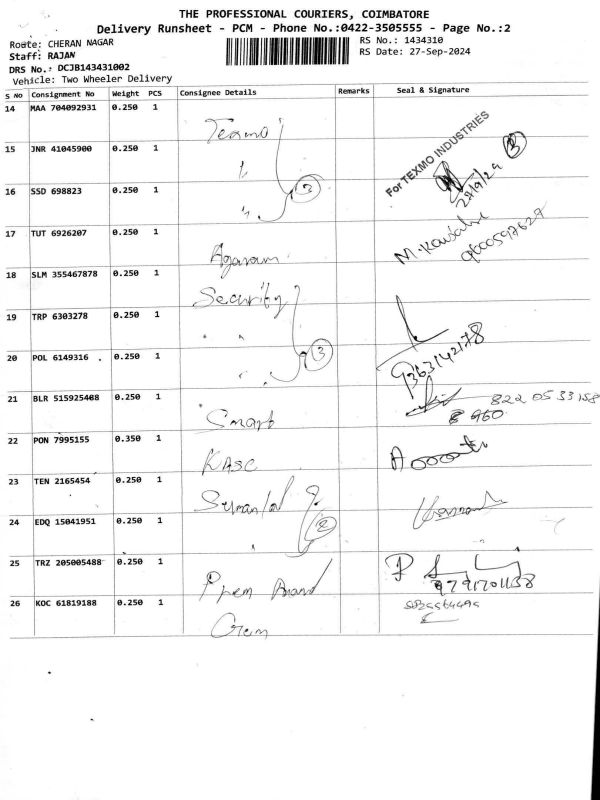 THE PROFESSIONAL COURIERS, COIMBATORE
Delivery Runsheet - PCM - Phone No.:0422-3505555 - Page No.:2
Route: CHERAN NAGAR
RS No.: 1434310
Staff: RAJAN
RS Date: 27-Sep-2024
DRS No.: DCJB143431002
Vehicle: Two Wheeler Delivery
S No Consignment No Weight PCS Consignee Details Remarks Seal & Signature
14 MAA 704092931 0.250 1 Texmo
For TEXMO INDUSTRIES
15 JNR 41045900 0.250 1 "
3
27/9/24
16 SSD 698823 0.250 1 " 3
17 TUT 6926207 0.250 1 Agaram
9600597629
18 SLM 355467878 0.250 1 Security
19 TRP 6303278 0.250 1 "
20 POL 6149316 0.250 1 " 3
9363142178
21 BLR 515925408 0.250 1 Smart
822 05 33158
960
22 PON 7995155 0.350 1 KASC
23 TEN 2165454 0.250 1
24 EDQ 15041951 0.250 1 " 2
25 TRZ 205005488 0.250 1 Prem Anand
9791701138
26 KOC 61819188 0.250 1